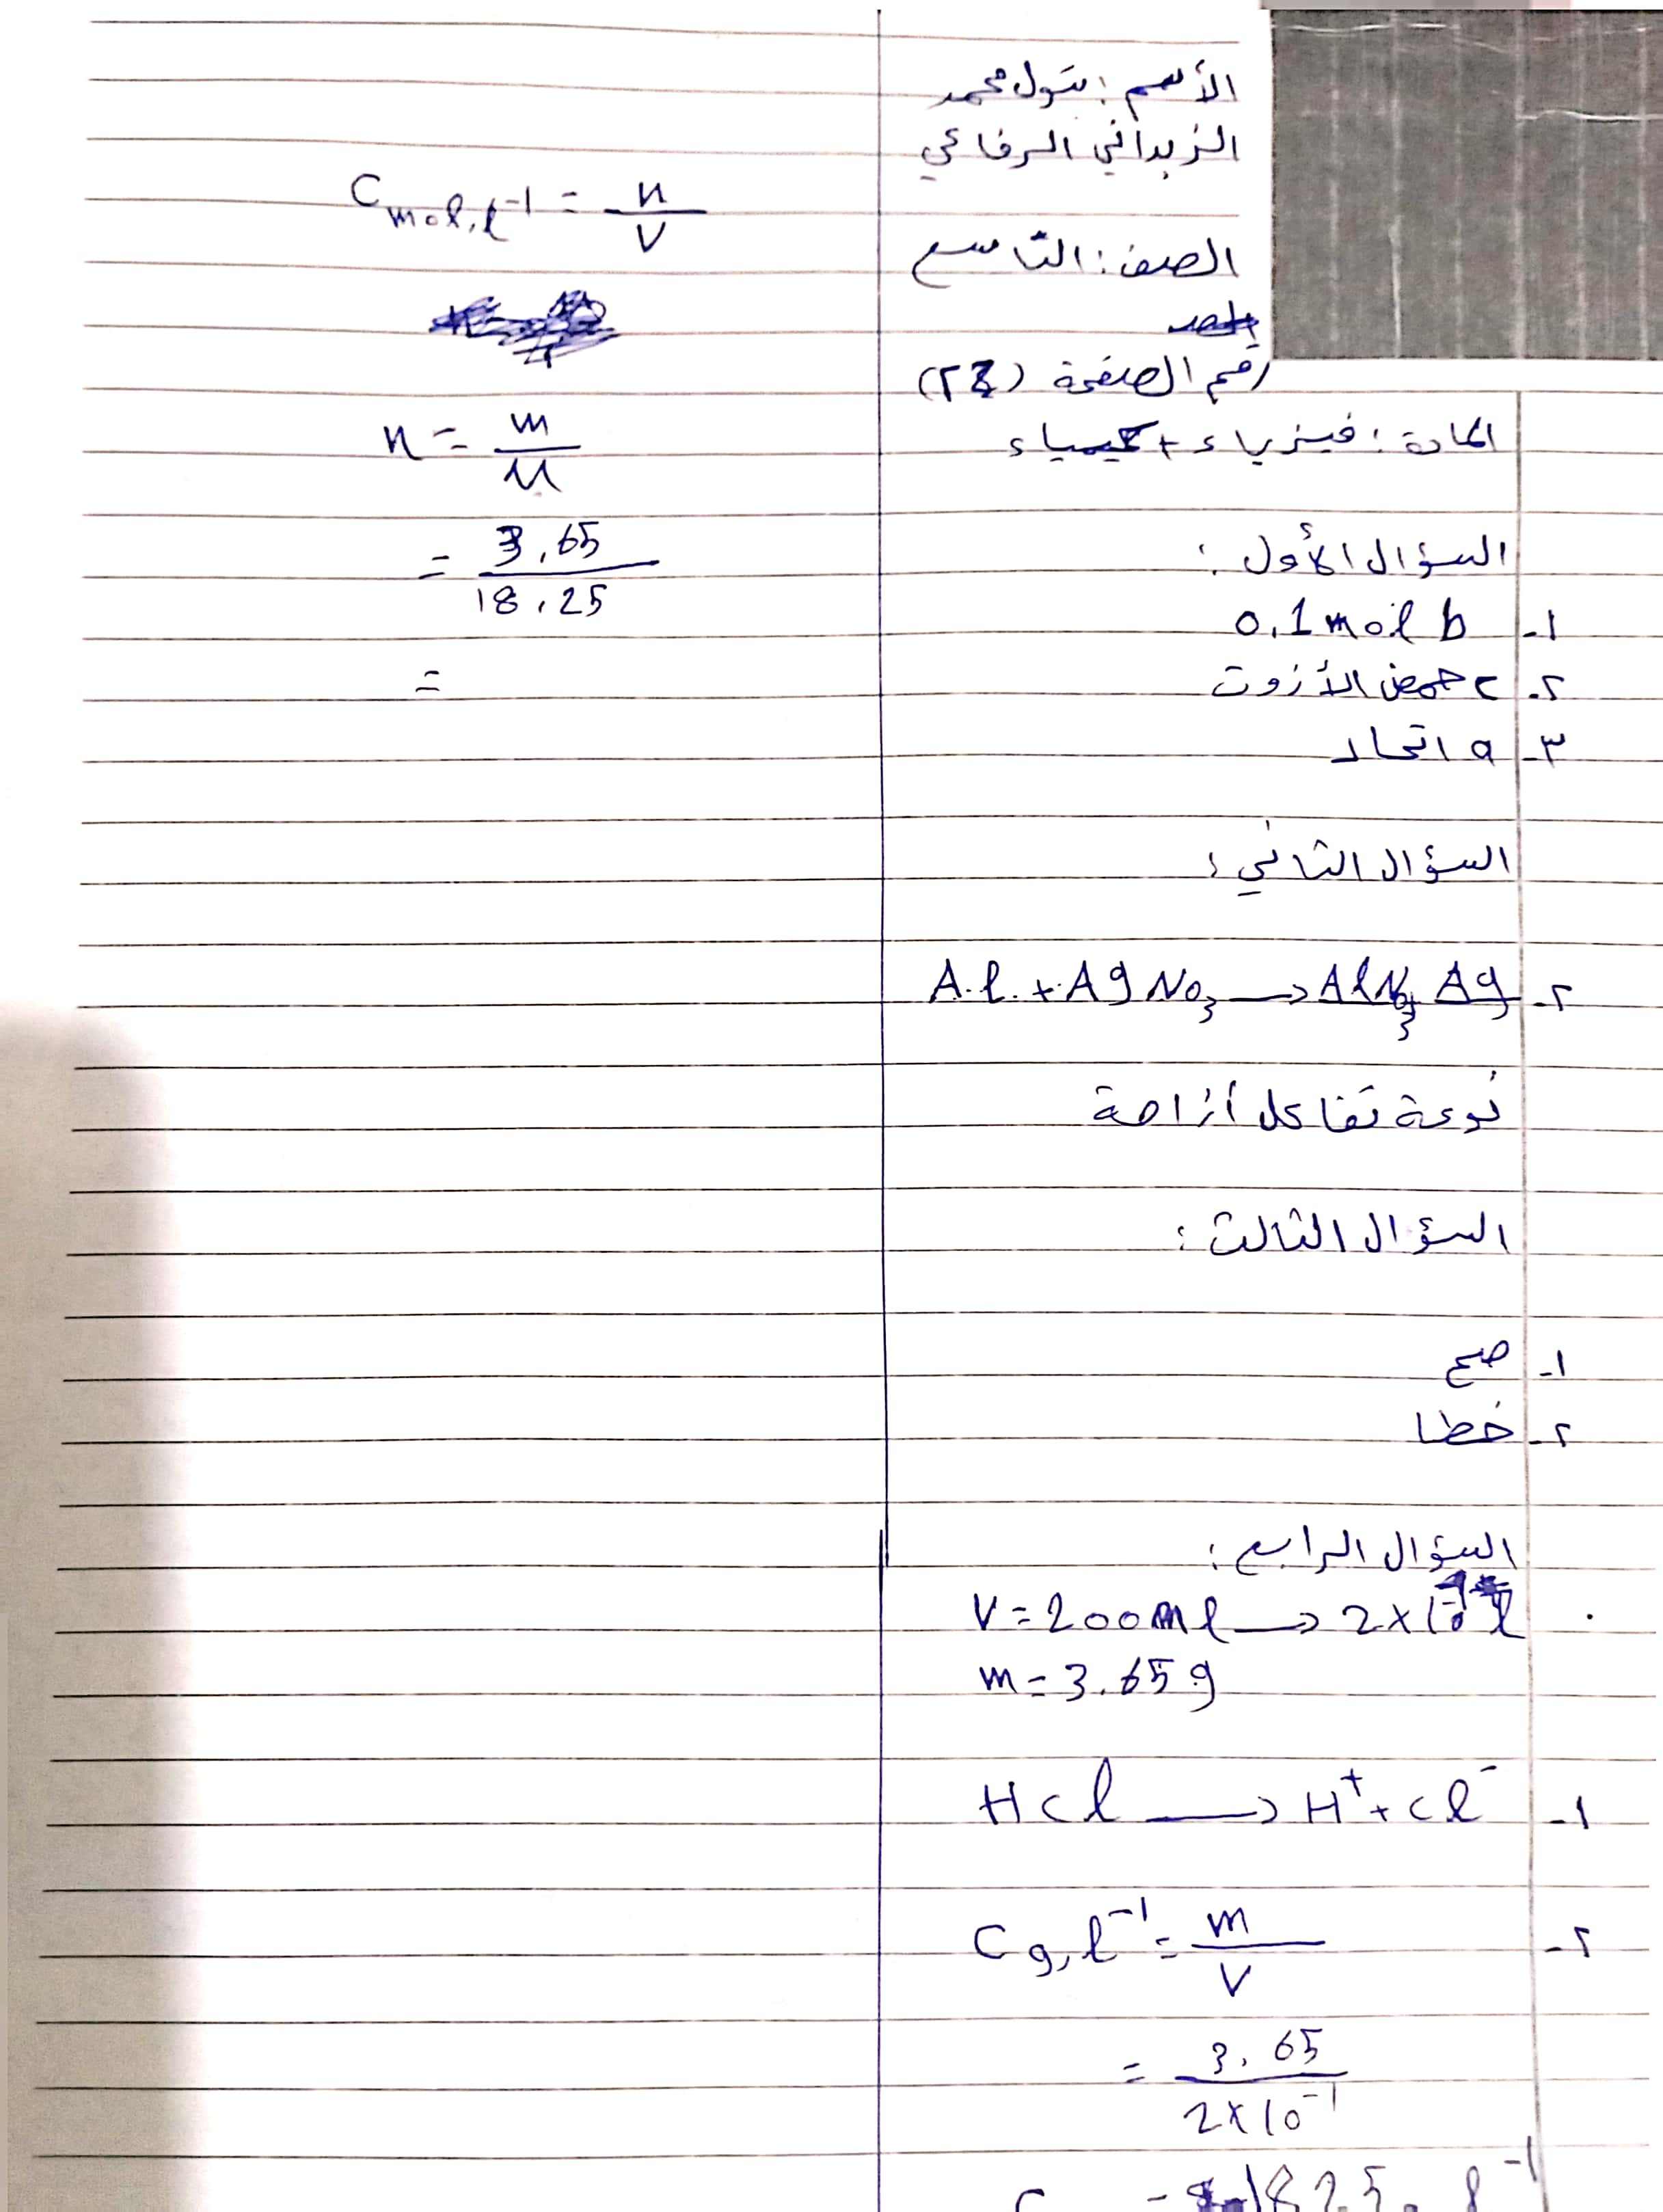 الأسم : بتول محمد
الزبداني الرفاعي
الصف : التاسع
رقم الصفحة
المادة : فيزياء + كيمياء
السؤال الأول :
١- b 0,1 mol
٢- c حمض الأزوت
٣- a اتحاد
السؤال الثاني :
٢- Al + AgNO₃ → AlNO₃ Ag
نوعة تفاعل أزاحة
السؤال الثالث :
١- صح
٢- خطا
السؤال الرابع :
V = 200 ml → 2 × 10⁻¹ l
m = 3.65 g
١- HCl → H⁺ + Cl⁻
٢- C g.l⁻¹ = m / V
= 3.65 / 2 × 10⁻¹
C mol.l⁻¹ = n / V
n = m / M
= 3.65 / 18.25
=